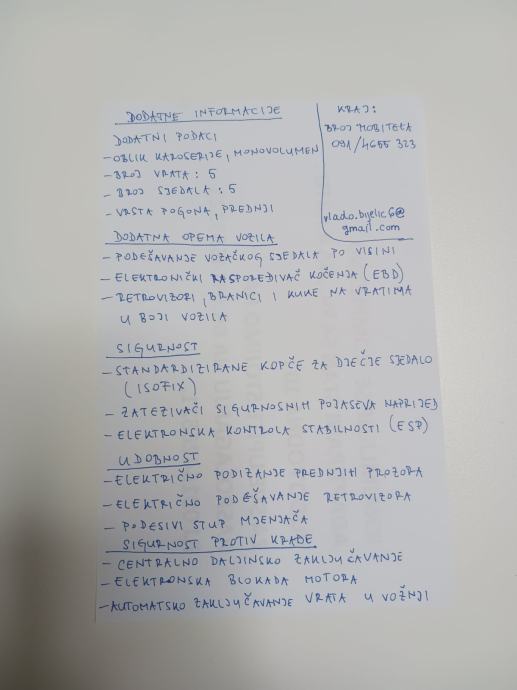 DODATNE INFORMACIJE
DODATNI PODACI
- OBLIK KAROSERIJE, MONOVOLUMEN
- BROJ VRATA : 5
- BROJ SJEDALA : 5
- VRSTA POGONA, PREDNJI
KRAJ:
BROJ MOBITELA
091/4655 323
vlado.bijelic6@
gmail.com
DODATNA OPEMA VOZILA
- PODEŠAVANJE VOZAČKOG SJEDALA PO VISINI
- ELEKTRONIČKI RASPOREĐIVAČ KOČENJA (EBD)
- RETROVIZORI, BRANICI I KUKE NA VRATIMA
U BOJI VOZILA
SIGURNOST
- STANDARDIZIRANE KOPČE ZA DJEČJE SJEDALO
(ISOFIX)
- ZATEZIVAČI SIGURNOSNIH POJASEVA NAPRIJED
- ELEKTRONSKA KONTROLA STABILNOSTI (ESP)
UDOBNOST
- ELEKTRIČNO PODIZANJE PREDNJIH PROZORA
- ELEKTRIČNO PODEŠAVANJE RETROVIZORA
- PODESIVI STUP MJENJAČA
SIGURNOST PROTIV KRAĐE
- CENTRALNO DALJINSKO ZAKLJUČAVANJE
- ELEKTRONSKA BLOKADA MOTORA
- AUTOMATSKO ZAKLJUČAVANJE VRATA U VOŽNJI